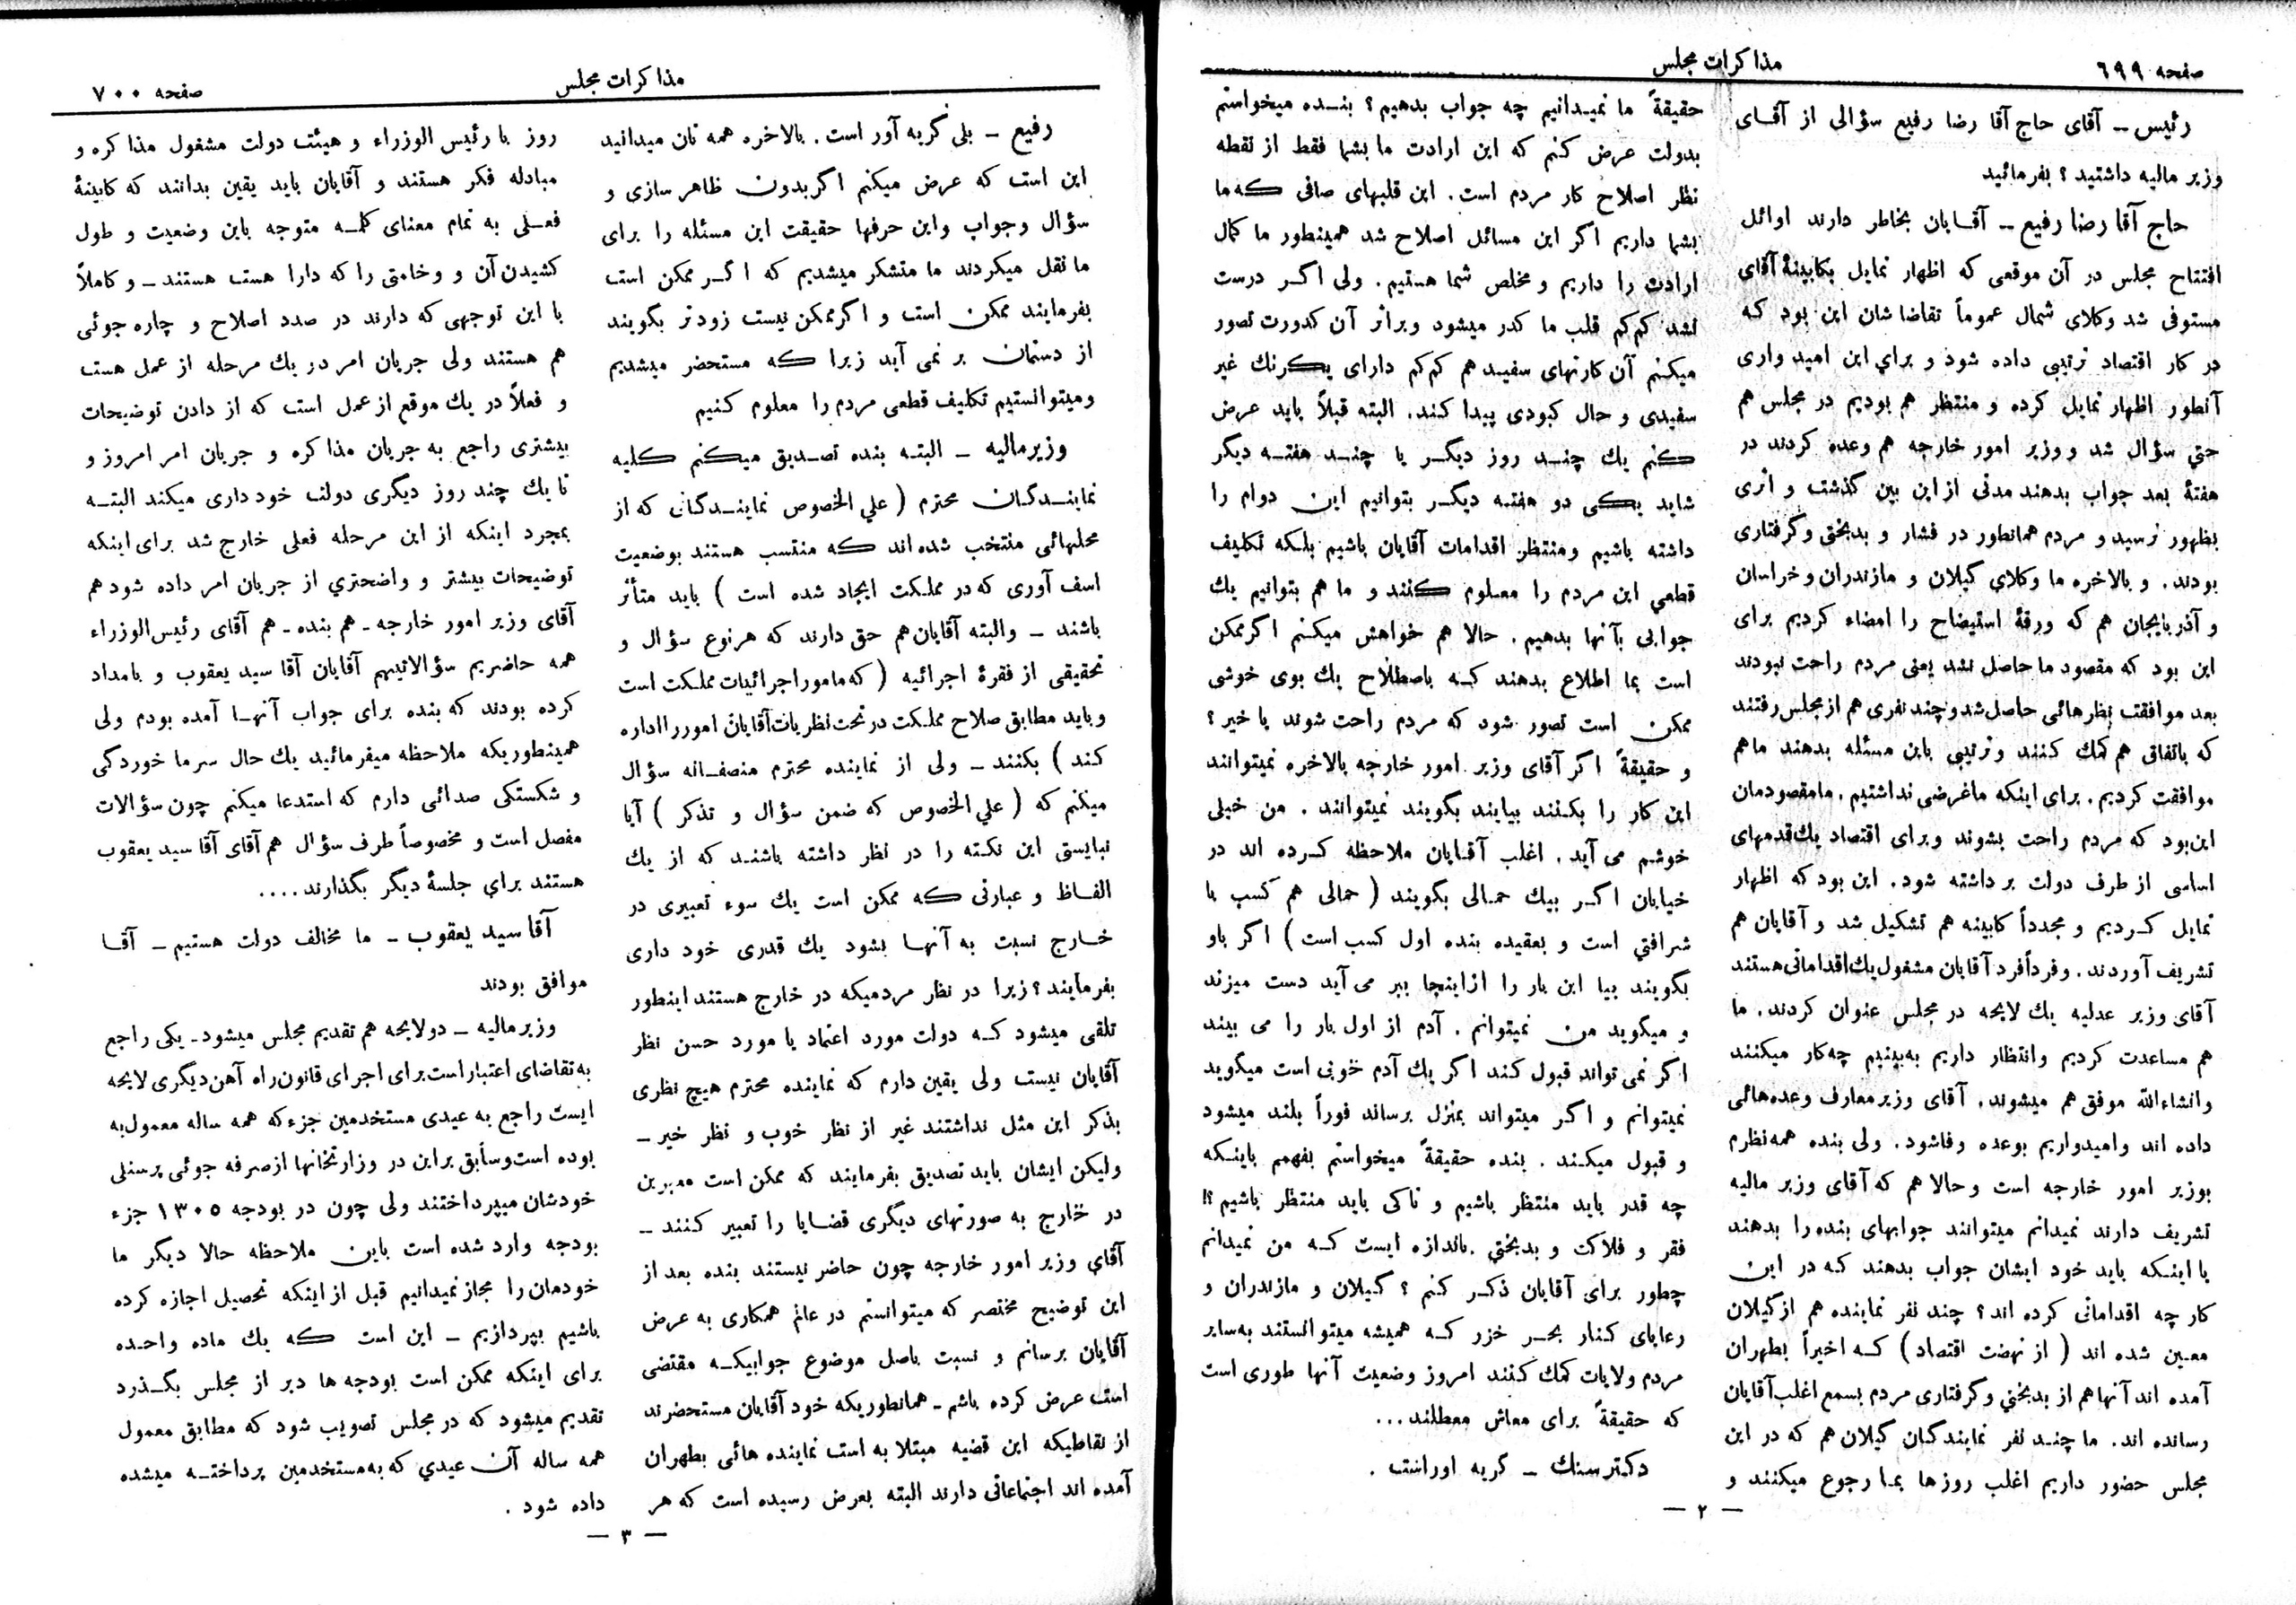 صفحه ٦٩٩
مذاکرات مجلس
رئیس ــ آقای حاج آقا رضا رفیع سؤالی از آقـای
وزیر مالیه داشتید ؟ بفرمائید
حاج آقا رضا رفیع ــ آقـایان بخاطر دارند اوائل
افتتاح مجلس در آن موقعی که اظهار تمایل بکابینهٔ آقای
مستوفی شد وکلای شمال عموماً تقاضا شان این بود کـه
در کار اقتصاد ترتیبی داده شود و برای این امید واری
آنطور اظهار تمایل کرده و منتظر هم بودیم در مجلس هم
حتي سؤال شد و وزیر امور خارجه هم وعده کردند در
هفتهٔ بعد جواب بدهند مدتی از این بین گذشت و اثری
بظهور نرسید و مردم همانطور در فشار و بدبختی وگرفتاری
بودند . و بالاخره ما وکلای گیلان و مازندران و خراسان
و آذربایجان هم که ورقهٔ استیضاح را امضاء کردیم برای
این بود که مقصود ما حاصل نشد یعنی مردم راحت نبودند
بعد موافقت نظرهائی حاصل شد و چند نفری هم از مجلس رفتند
که باتفاق هم کمك کنند و ترتیبی باین مسئله بدهند ما هم
موافقت کردیم . برای اینکه ما غرضی نداشتیم . ما مقصودمان
این‌بود که مردم راحت بشوند و برای اقتصاد یك‌قدمهای
اساسی از طرف دولت برداشته شود . این بود که اظهار
تمایل کـردیم و مجدداً کابینه هم تشکیل شد و آقایان هم
تشریف آوردند . و فرداً فرد آقایان مشغول یك اقداماتی هستند
آقای وزیر عدلیه یك لایحه در مجلس عنوان کردند . ما
هم مساعدت کردیم و انتظار داریم به‌بینیم چه‌کار میکنند
و انشاءالله موفق هم میشوند . آقای وزیر معارف وعده‌هائی
داده اند و امیدواریم بوعده وفا شود . ولی بنده همه نظرم
بوزیر امور خارجه است و حالا هم که آقای وزیر مالیه
تشریف دارند نمیدانم میتوانند جوابهای بنده را بدهند
یا اینـکه باید خود ایشان جواب بدهند کـه در این
کار چه اقداماتی کرده اند ؟ چند نفر نماینده هم از گیلان
معـین شده اند ( از نهضت اقتصاد ) کـه اخیراً بطهران
آمده اند آنها هم از بدبختي وگرفتاری مردم بسمع اغلب آقایان
رسانده اند . ما چنـد نفر نمایندگـان گیلان هم که در این
مجلس حضور داریم اغلب روزها بمـا رجوع میکنند و
حقیقةً ما نمیـدانیم چه جواب بدهیم ؟ بنـده میخواستم
بدولت عرض کنم که این ارادت ما بشما فقط از نقطه
نظر اصلاح کار مردم است . این قلبهای صافی کـه ما
بشما داریم اگر این مسائل اصلاح شد همینطور ما کمال
ارادت را داریم و مخلص شما هستیم . ولی اگـر درست
نشد کم‌کم قلب ما کدر میشود و براثر آن کدورت تصور
میکـنم آن کارتهای سفیـد هم کم‌کم دارای یـکرنك غیر
سفیدی و حال کبودی پیدا کـند . البته قبلاً باید عرض
کنم یك چنـد روز دیگـر یا چنـد هفتـه دیگر
شاید یـکی دو هفتـه دیگـر بتوانیم این دوام را
داشته باشیم و منتظر اقدامات آقایان باشیم بلـکه تکلیف
قطعي این مردم را معـلوم کـنند و ما هم بتوانیم یك
جوابی بآنها بدهیم . حالا هم خواهش میکـنم اگر ممکن
است بما اطلاع بدهند کـه باصطلاح یك بوی خوشی
ممکن است تصور شود که مردم راحت شوند یا خیر ؟
و حقیقةً اگر آقای وزیر امور خارجه بالاخره نمیتوانند
این کار را بکـنند بیایند بگویند نمیتوانند . من خیلی
خوشم می آید . اغلب آقـایان ملاحظه کـرده اند در
خیابان اگـر بیك حمـالی بگویند ( حمالی هم کسب با
شرافتي است و بعقیده بنده اول کسب است ) اگر باو
بگویند بیا این بار را از اینجا ببر می آید دست میزند
و میگوید من نمیتوانم . آدم از اول بار را می بیند
اگر نمی تواند قبول کـند اگر یك آدم خوبی است میگوید
نمیتوانم و اگـر میتواند بمنزل برساند فوراً بلند میشود
و قبول میکـند . بنده حقیقةً میخواستم بفهمم باینـکه
چه قدر باید منتظر باشیم و تاکی باید منتظر باشیم ؟!
فقر و فلاکت و بدبختي باندازه ایست کـه من نمیدانم
چطور برای آقایان ذکـر کـنم ؟ گیلان و مازندران و
رعایای کنار بحـر خزر کـه همیشه میتوانستند به‌سایر
مردم ولایات کمك کـنند امروز وضعیت آنها طوری است
که حقیقةً برای معاش معطلند ...
دکتر سنك ــ گریه اور است .
ــ ٢ ــ
مذاکرات مجلس
صفحه ٧٠٠
رفیع ــ بلی گریه آور است . بالاخره همه تان میدانید
این است که عرض میکنم اگر بدون ظاهر سازی و
سؤال و جواب و این حرفها حقیقت این مسئله را برای
ما نقل میکردند ما متشکر میشدیم که اگـر ممکن است
بفرمایند ممکن است و اگر ممکن نیست زودتر بگویند
از دستمان بر نمی آید زیرا کـه مستحضر میشدیم
و میتوانستیم تکلیف قطعی مردم را معلوم کـنیم
وزیر مالیه ــ البتـه بنده تصـدیق میکنم کلیه
نماینـدگـان محترم ( علي الخصوص نماینـدگـانی که از
محلهائی منتخب شده‌اند کـه منتسب هستند بوضعیت
اسف آوری که در مملکت ایجاد شده است ) باید متأثر
باشند ــ و البته آقایان هم حق دارند که هر نوع سؤال و
تحقیقی از فقرهٔ اجرائیه ( که مامور اجرائیات مملکت است
و باید مطابق صلاح مملکت در تحت نظریات آقایان امور را اداره
کـند ) بکـنند ــ ولی از نماینده محترم منصفـانه سؤال
میکنم که ( علي الخصوص که ضمن سؤال و تذکر ) آیا
نبایستی این نکـته را در نظر داشته باشـند که از یك
الفـاظ و عباراتی کـه ممکن است یك سوء تعبیری در
خـارج نسبت به آنهـا بشود یك قدری خود داری
بفرمایند ؟ زیرا در نظر مردمیکه در خارج هستند اینطور
تلقی میشود کـه دولت مورد اعتماد یا مورد حسن نظر
آقایان نیست ولی یقین دارم که نماینده محترم هیچ نظری
بذکر این مثل نداشتند غیر از نظر خوب و نظر خیر ــ
ولیکن ایشان باید تصدیق بفرمایند که ممکن است معبرین
در خارج به صورتهای دیگری قضـایا را تعبیر کـنند ــ
آقای وزیر امور خارجه چون حاضر نیستند بنده بعد از
این توضیح مختصر که میتوانستم در عالم همکاری به عرض
آقایان برسانم و نسبت باصل موضوع جوابیکـه مقتضی
است عرض کرده باشم ــ همانطوریکه خود آقایان مستحضرند
از نقاطیکه این قضیه مبتلا به است نماینده هائی بطهران
آمده اند اجتماعاتی دارند البته بعرض رسیده است که هر
روز با رئیس الوزراء و هیئت دولت مشغول مذاکره و
مبادله فکر هستند و آقایان باید یقین بدانند که کابینهٔ
فعـلی به تمام معنای کلمـه متوجه باین وضعیت و طول
کشیدن آن و وخامتی را که دارا هست هستند ــ و کاملاً
با این توجهی که دارند در صدد اصلاح و چاره جوئی
هم هستند ولی جریان امر در یك مرحله از عمل هست
و فعلاً در یك موقع از عمل است که از دادن توضیحات
بیشتری راجع به جریان مذاکره و جریان امر امروز و
تا یك چند روز دیگری دولت خود داری میکند البتـه
بمجرد اینکه از این مرحله فعلی خارج شد برای اینکه
توضیحات بیشتر و واضحتري از جریان امر داده شود هم
آقای وزیر امور خارجه ــ هم بنده ــ هم آقای رئیس‌الوزراء
همه حاضریم سؤالاتیهم آقایان آقا سید یعقوب و بامداد
کرده بودند که بنده برای جواب آنهـا آمده بودم ولی
همینطوریکه ملاحظه میفرمائید یك حال سرما خوردگی
و شکستگی صدائی دارم که استدعا میکنم چون سؤالات
مفصل است و مخصوصاً طرف سؤال هم آقای آقا سید یعقوب
هستند براي جلسهٔ دیگر بگذارند ....
آقا سید یعقوب ــ ما مخالف دولت هستیم ــ آقـا
موافق بودند
وزیر مالیه ــ دولایحه هم تقدیم مجلس میشود ــ یکی راجع
به تقاضای اعتبار است برای اجرای قانون راه آهن دیگری لایحه
ایست راجع به عیدی مستخدمین جزء که همه ساله معمول‌به
بوده است و سابق بر این در وزارتخانها از صرفه جوئی پرسنلی
خودشان میپرداختند ولی چون در بودجه ١٣٠٥ جزء
بودجه وارد شده است باین ملاحظه حالا دیگر ما
خودمان را مجاز نمیدانیم قبل از اینکه تحصیل اجازه کرده
باشیم بپردازیم ــ این است کـه یك ماده واحـده
برای اینکه ممکن است بودجه ها دیر از مجلس بگـذرد
تقدیم میشود که در مجلس تصویب شود که مطابق معمول
همه ساله آن عیدي که به‌مستخدمین پرداختـه میشده
داده شود .
ــ ٣ ــ